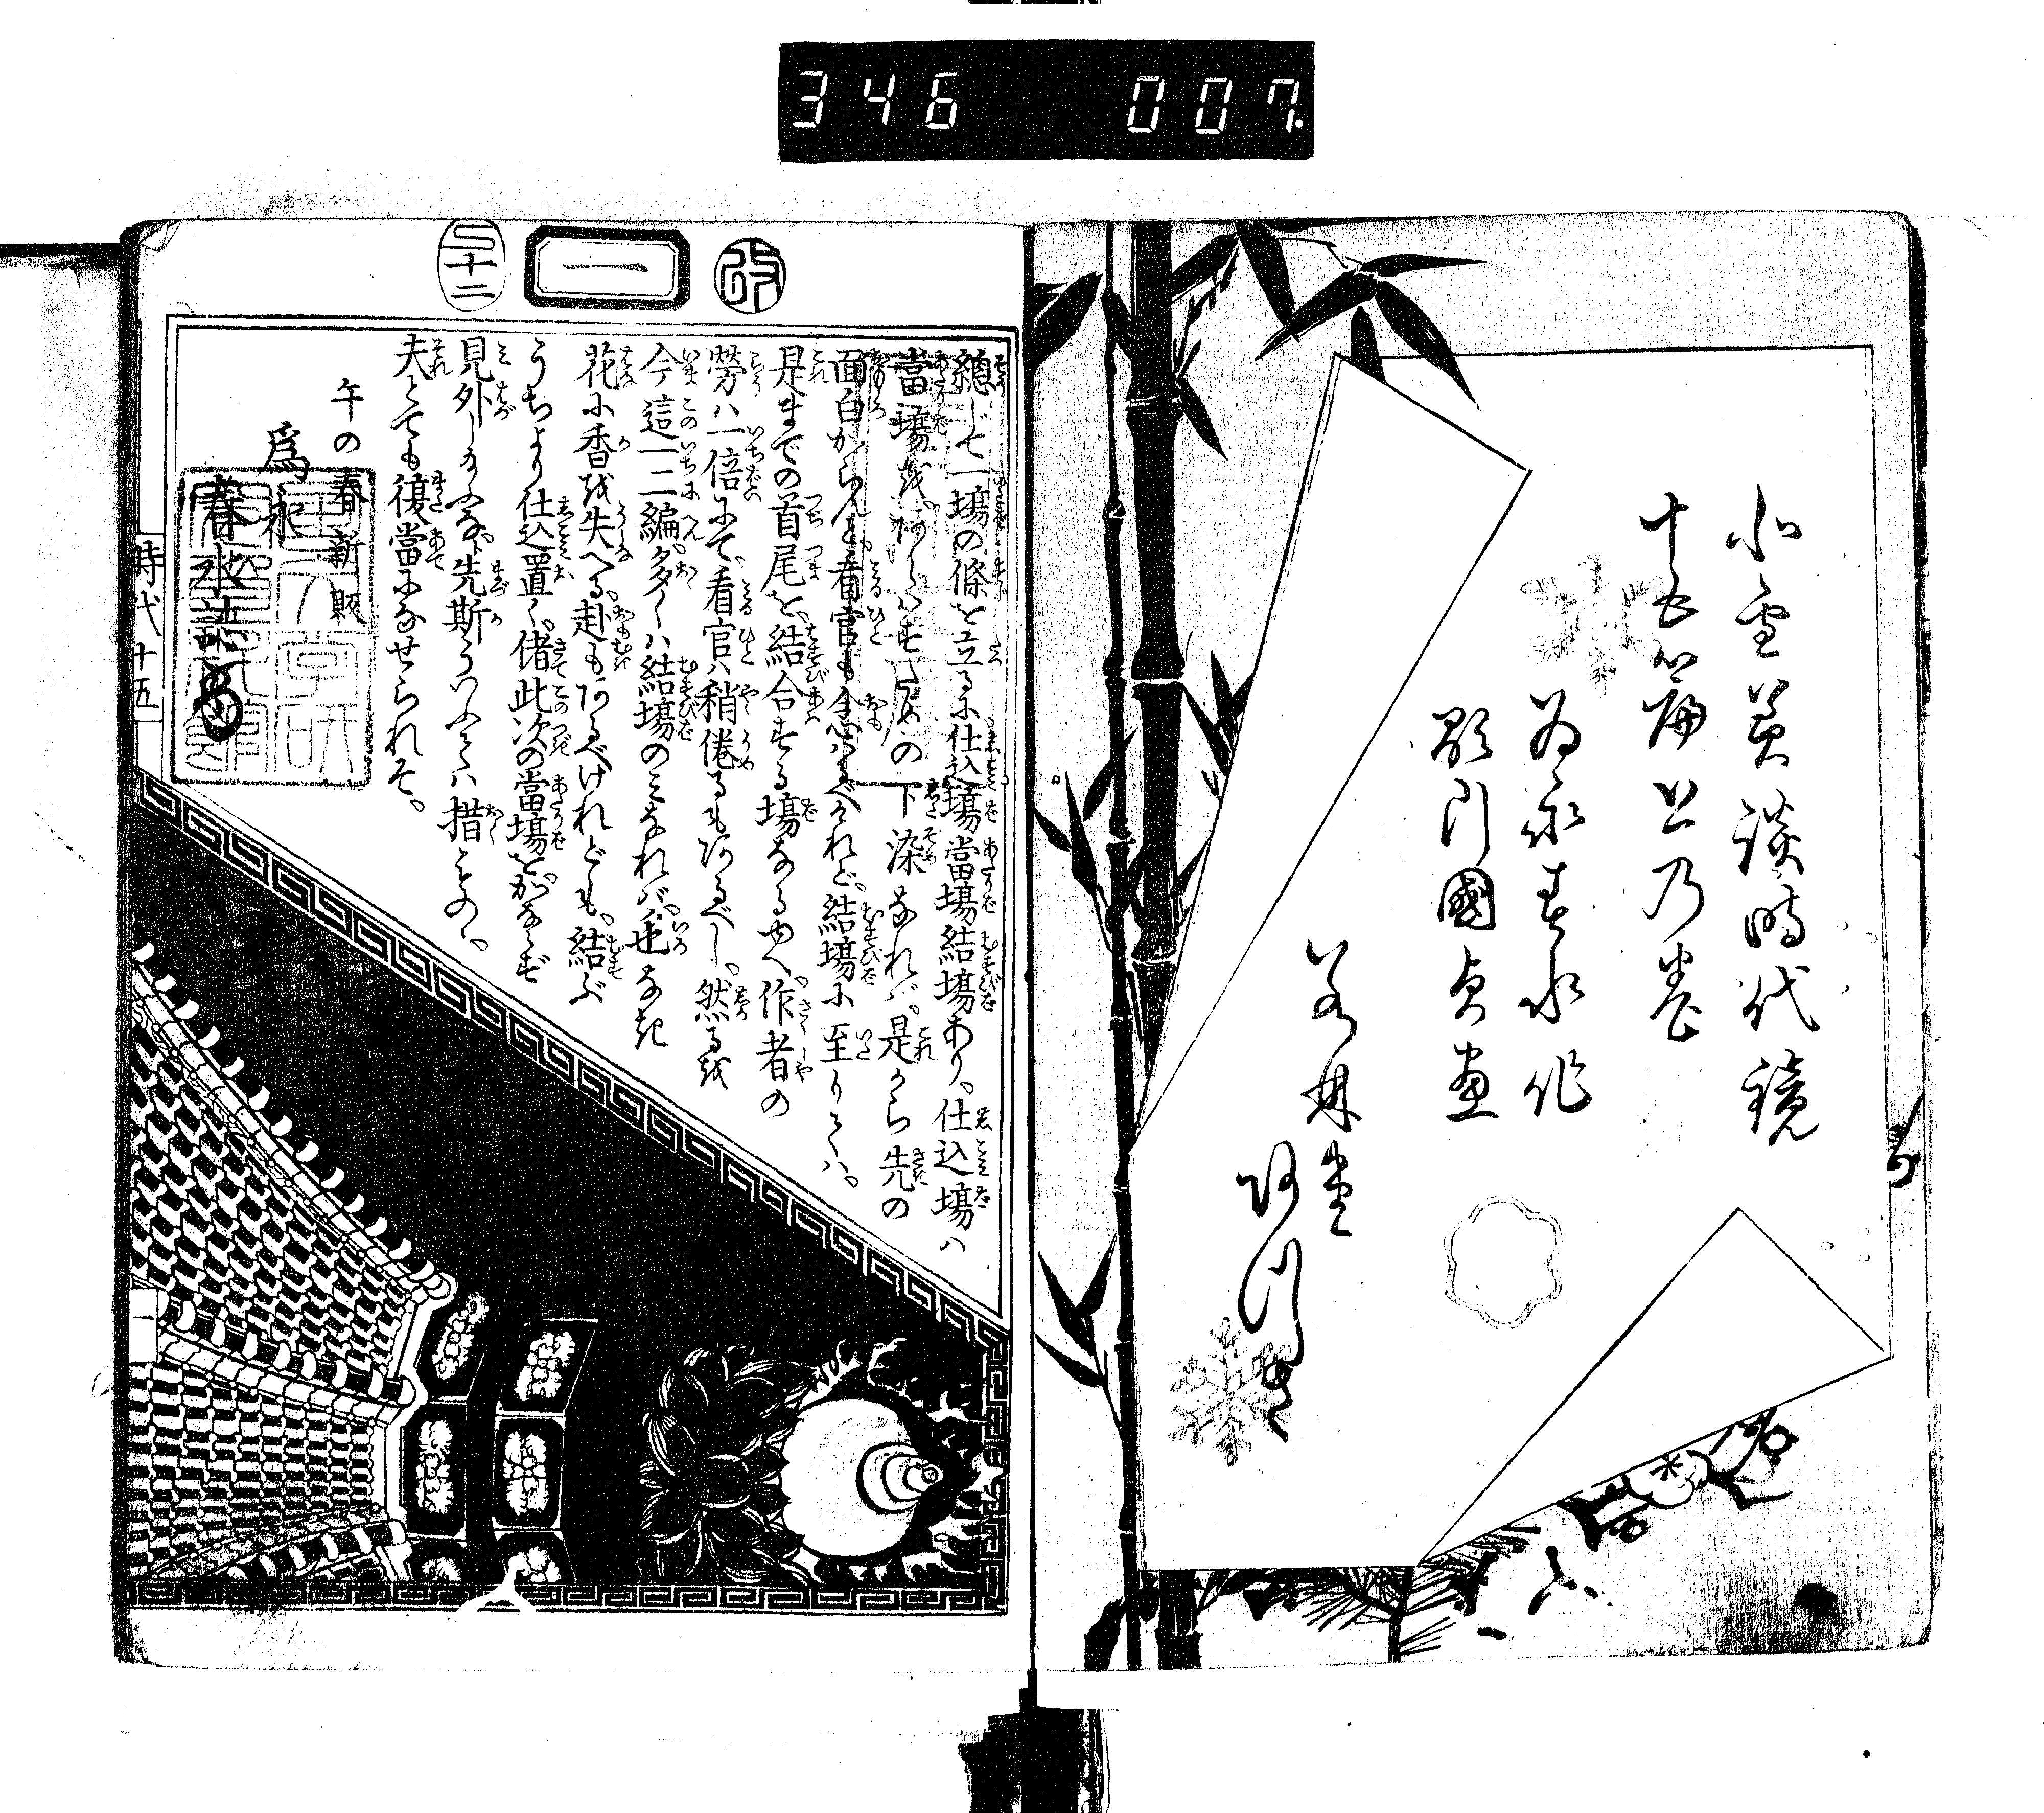 346 007
北雪美談時代鏡
十五編上乃巻
為永春水作
歌川國貞画
若林堂
改
一
総じて一場の條を立るに仕込場當場結場あり、仕込場ハ
當場をあらハすための下染なれバ、是から先の
面白からんを看官も思ハるべけれど、結場に至りてハ、
是までの首尾を結合する場なるゆへ、作者の
労ハ一倍にて、看官ハ稍倦るもあるべし、然るを
今這一二編、多くハ結場のミなれバ、色なき
花に香を失へる、赴もあるべけれども、結ぶ
うちより仕込置く、偖此次の當場をかならず
見外し給ふな、先斯ういふてハ措ものゝ、
夫とても復當になせられそ。
午の春新販
為永
春水誌
時代十五
一